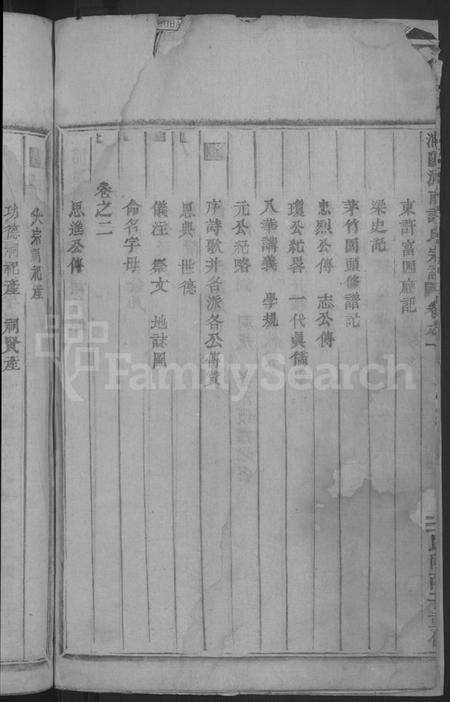 東許富四廳記
梁史記
茅竹園頭修譜記
忠烈公傳 志公傳
瓊公紀畧 一代眞儒
八華講義 學規
元公紀略
序詩歌并各派各公傳贊
恩典 世德
儀注 祭文 地誌圖
命名字母
卷之二
思進公傳
大宗祠祀產
功德祠祀產 祠賢產
FamilySearch